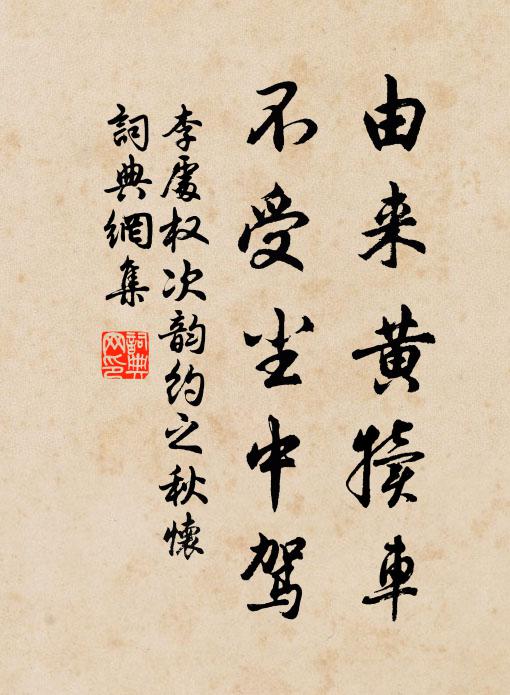 由来黄犊車
不受尘中驾
李處权次韵约之秋懷
詞典網集
詞典网印